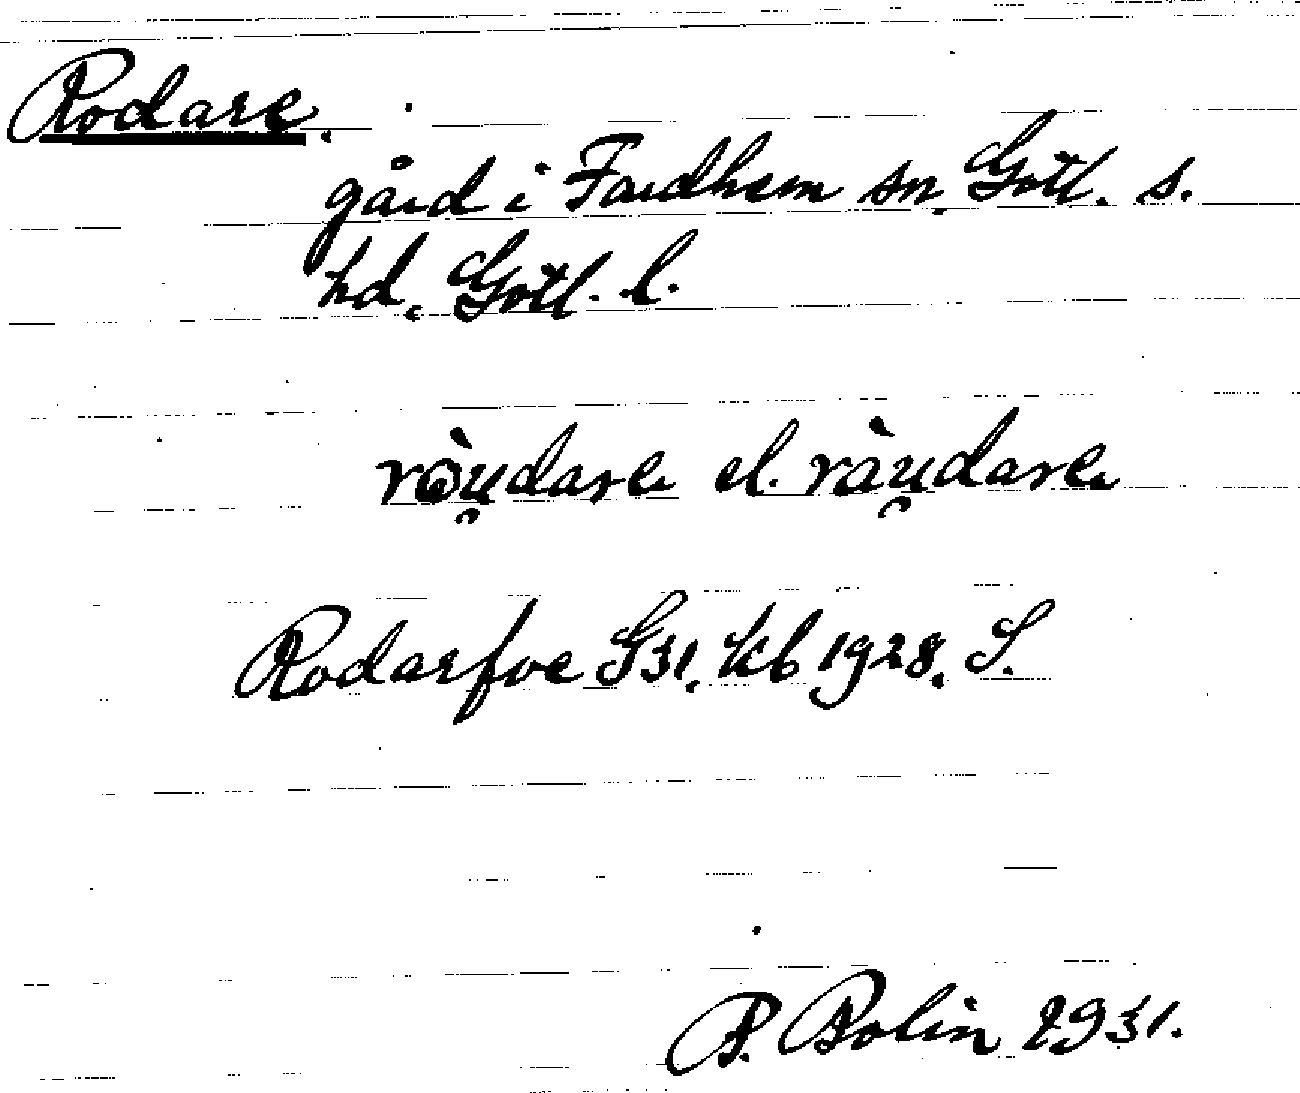 Rodare.
gård i Fardhem sn. Gotl. s.
hd. Gotl. l.
rò̱u̯dare el. ràu̯dare
Rodarfve G31. Kb 1928. S.
P. Bolin 1931.